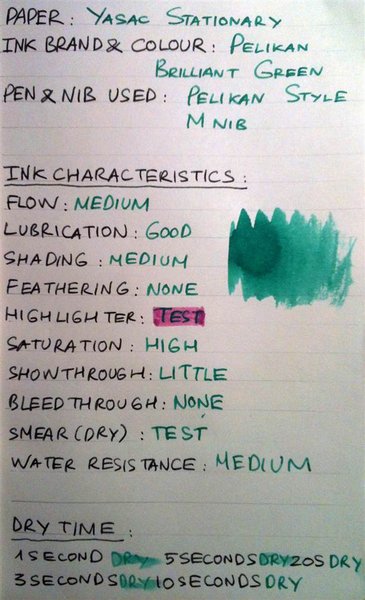 PAPER: YASAC STATIONARY
INK BRAND & COLOUR: PELIKAN
BRILLIANT GREEN
PEN & NIB USED: PELIKAN STYLE
M NIB
INK CHARACTERISTICS:
FLOW: MEDIUM
LUBRICATION: GOOD
SHADING: MEDIUM
FEATHERING: NONE
HIGHLIGHTER: TEST
SATURATION: HIGH
SHOWTHROUGH: LITTLE
BLEEDTHROUGH: NONE
SMEAR (DRY): TEST
WATER RESISTANCE: MEDIUM
DRY TIME:
1 SECOND DRY 5 SECONDS DRY 20S DRY
3 SECONDS DRY 10 SECONDS DRY